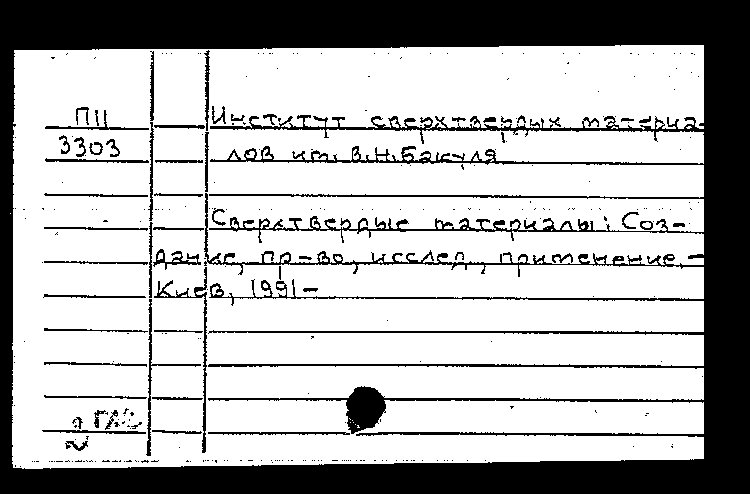 П11 Институт сверхтвердых материа-
3303 лов им. В.Н.Бакуля
Сверхтвердые материалы: Соз-
дание, пр-во, исслед., применение.-
Киев, 1991-